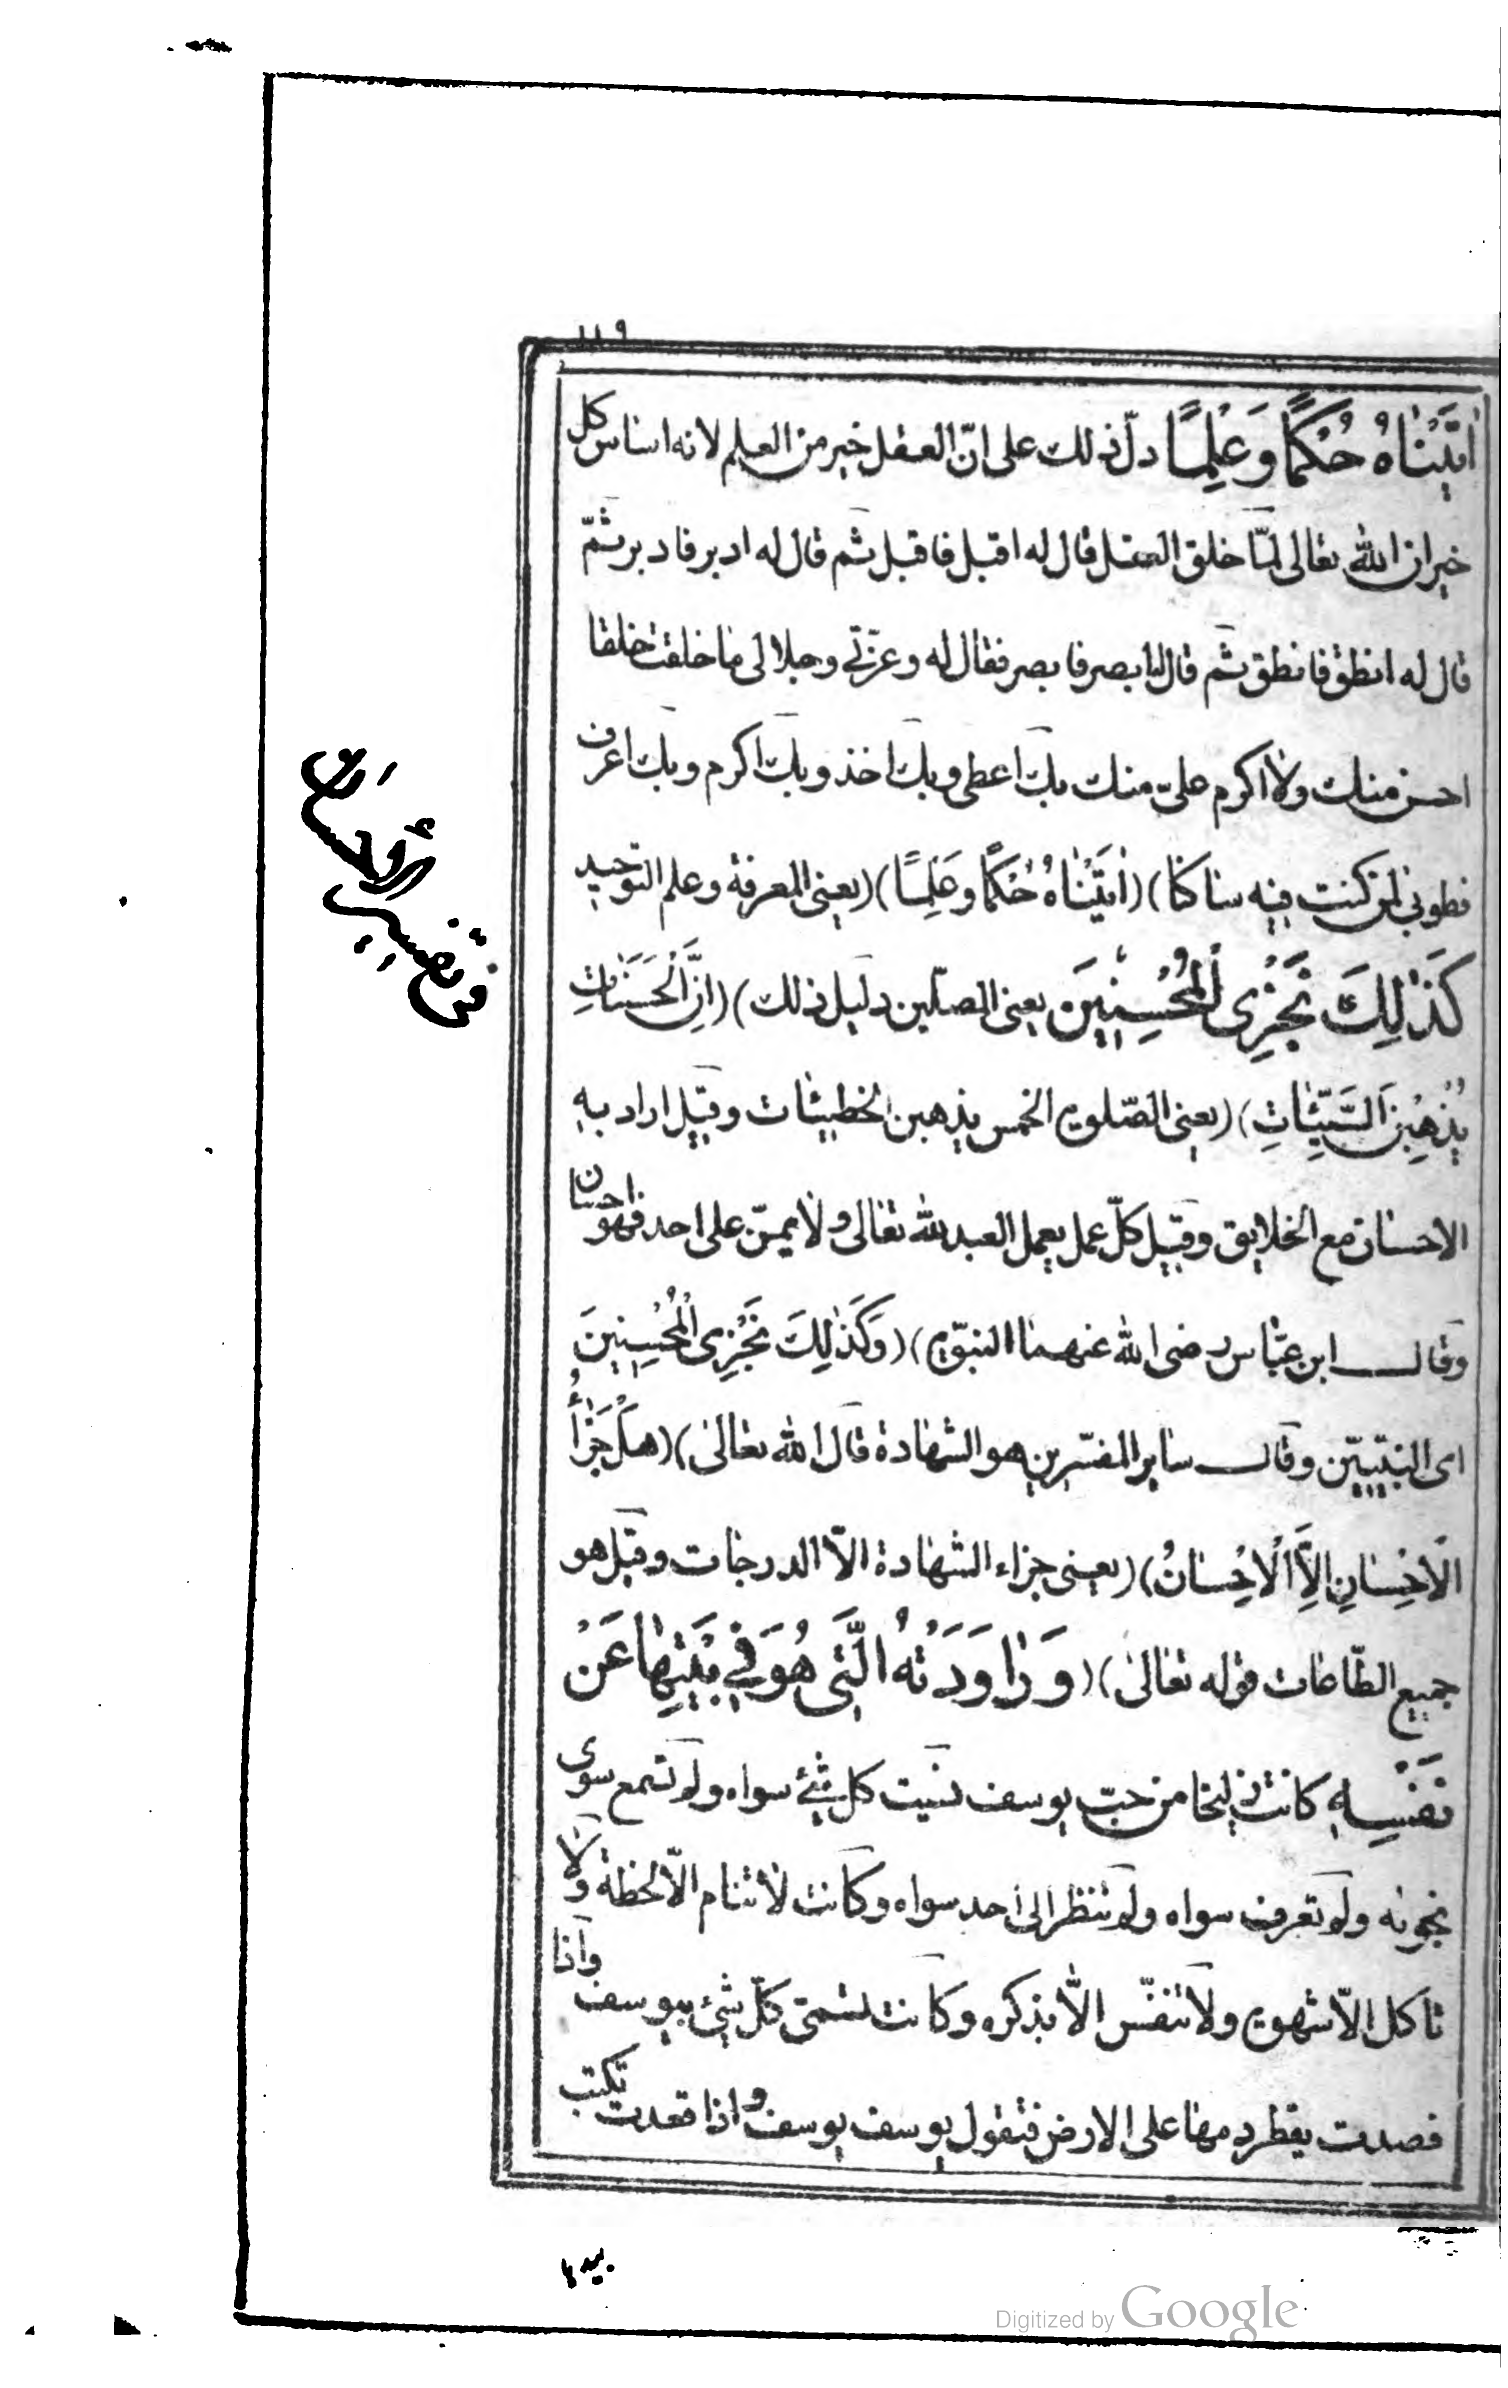 ١١٩
اٰتَيْنَاهُ حُكْمًا وَعِلْمًا دلّ ذلك على انّ العقل خير من العلم لانه اساس كل
خير ان الله تعالى لمّا خلق العقل قال له اقبل فاقبل ثم قال له ادبر فادبر ثمّ
قال له انطق فانطق ثم قال له ابصر فابصر فقال له وعزّتى وجلالى ما خلقت خلقا
احسن منك ولا اكرم علىّ منك بك اعطى وبك اخذ وبك اكرم وبك اعرف
فطوبى لمن كنت فيه ساكنا) (اٰتَيْنَاهُ حُكْمًا وَعِلْمًا) (يعنى المعرفة وعلم التوحيد
كَذٰلِكَ نَجْزِى الْمُحْسِنِينَ يعنى المصلّين دليل ذلك) (اِنَّ الْحَسَنَاتِ
يُذْهِبْنَ السَّيِّئَاتِ) (يعنى الصّلوة الخمس يذهبن الخطيئات وقيل اراد به
الاحسان مع الخلايق وقيل كلّ عمل يعمل العبد لله تعالى ولا يمنّ على احد فهو احسان
وقال ابن عبّاس رضى الله عنهما النبوّة) (وَكَذٰلِكَ نَجْزِى الْمُحْسِنِينَ
اى النبيّين وقال ساير المفسّرين هو الشهادة قال الله تعالى) (هَلْ جَزَاءُ
الْاِحْسَانِ اِلَّا الْاِحْسَانُ) (يعنى جزاء الشهادة الّا الدرجات وقيل هو
جميع الطّاعات قوله تعالى) (وَرَاوَدَتْهُ الَّتِى هُوَ فِى بَيْتِهَا عَنْ
نَفْسِهِ كانت زليخا من حبّ يوسف نسيت كل شئ سواه ولم تسمع سوى
نجونه ولم تعرف سواه ولم تنظر الى احد سواه وكانت لا تنام الّا لحظة ولا
تاكل الّا شهوة ولا تتنفّس الّا بذكره وكانت تسمّى كلّ شئ بيوسف واذا
فصدت يقطر دمها على الارض فتقول يوسف يوسف واذا قعدت تكتب
بيدها